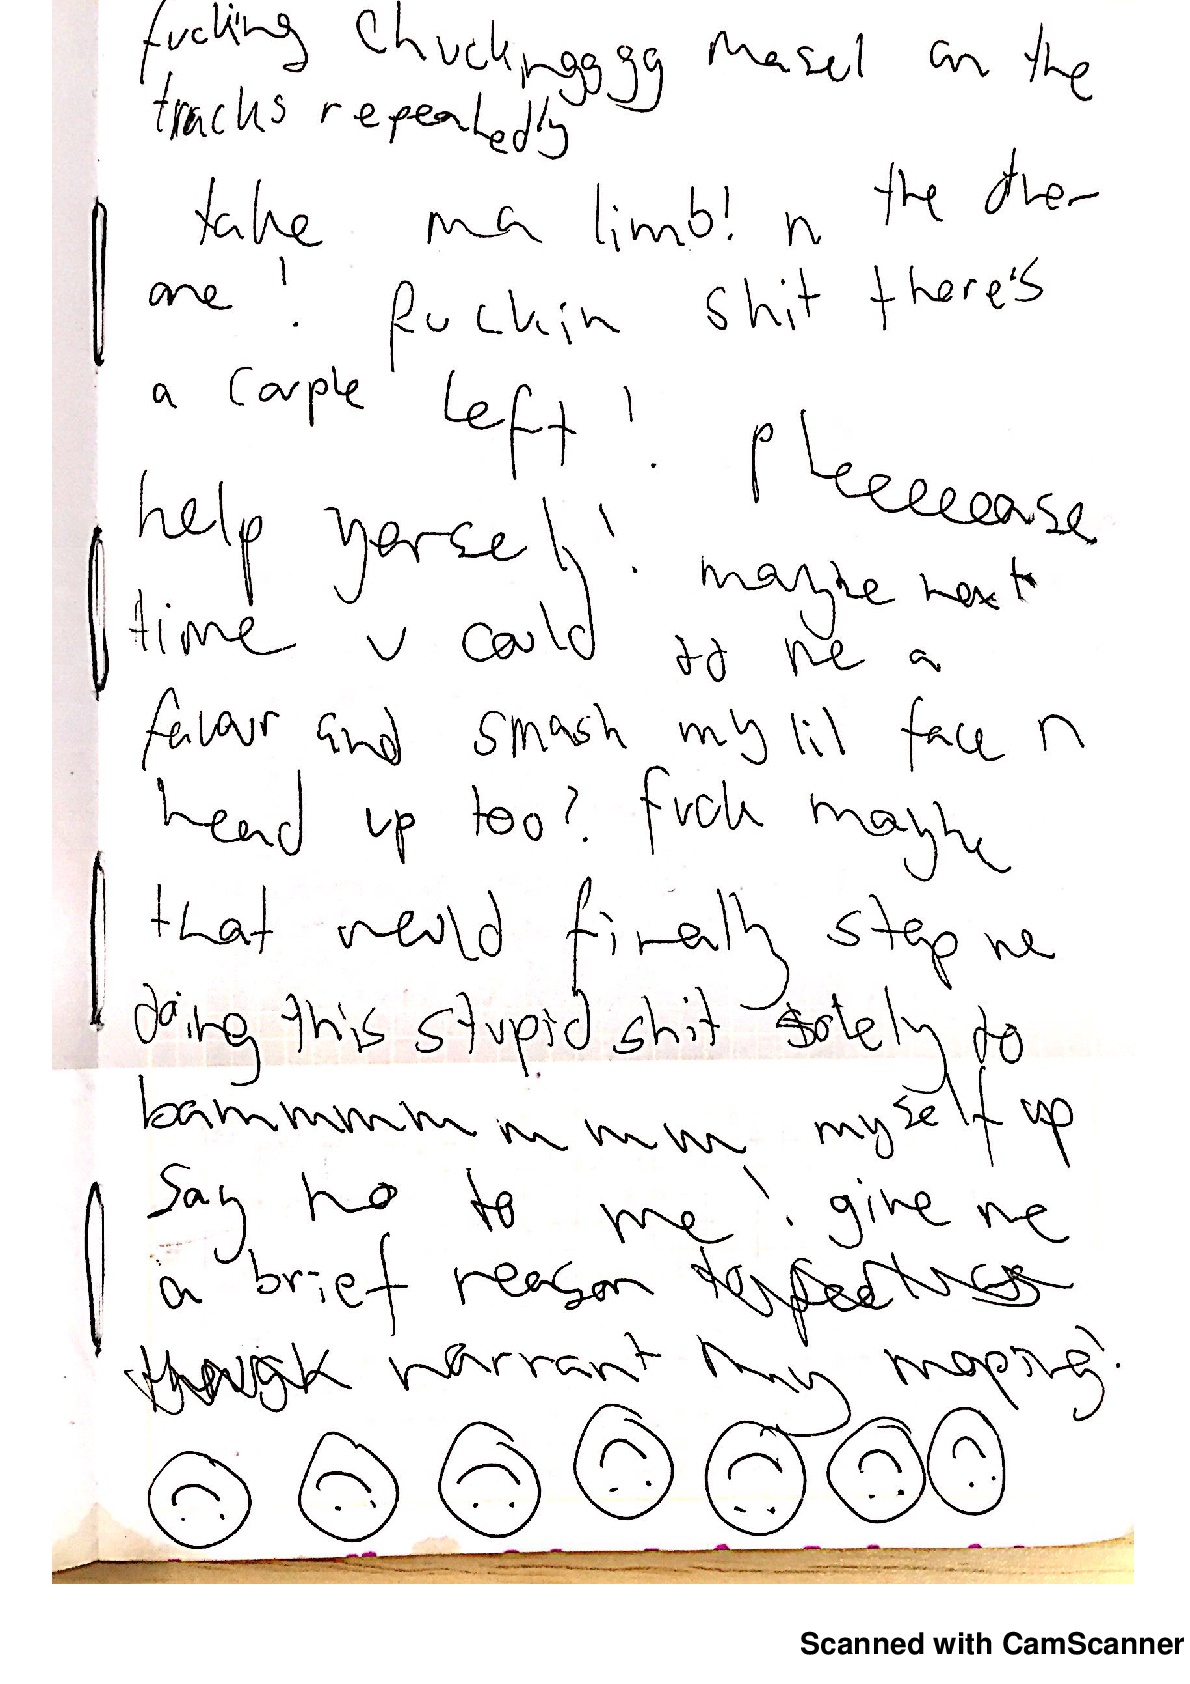 fucking chuckingggg masel on the
tracks repeatedly
take ma limb! n the other
one! fuckin shit there's
a couple left! pleeeeease
help yerself! maybe next
time u could do me a
favour and smash my lil face n
head up too? fuck maybe
that would finally stop me
doing this stupid shit solely to
bammmmmmmm myself up
Say no to me! give me
a brief reason
warrant my moping!
Scanned with CamScanner